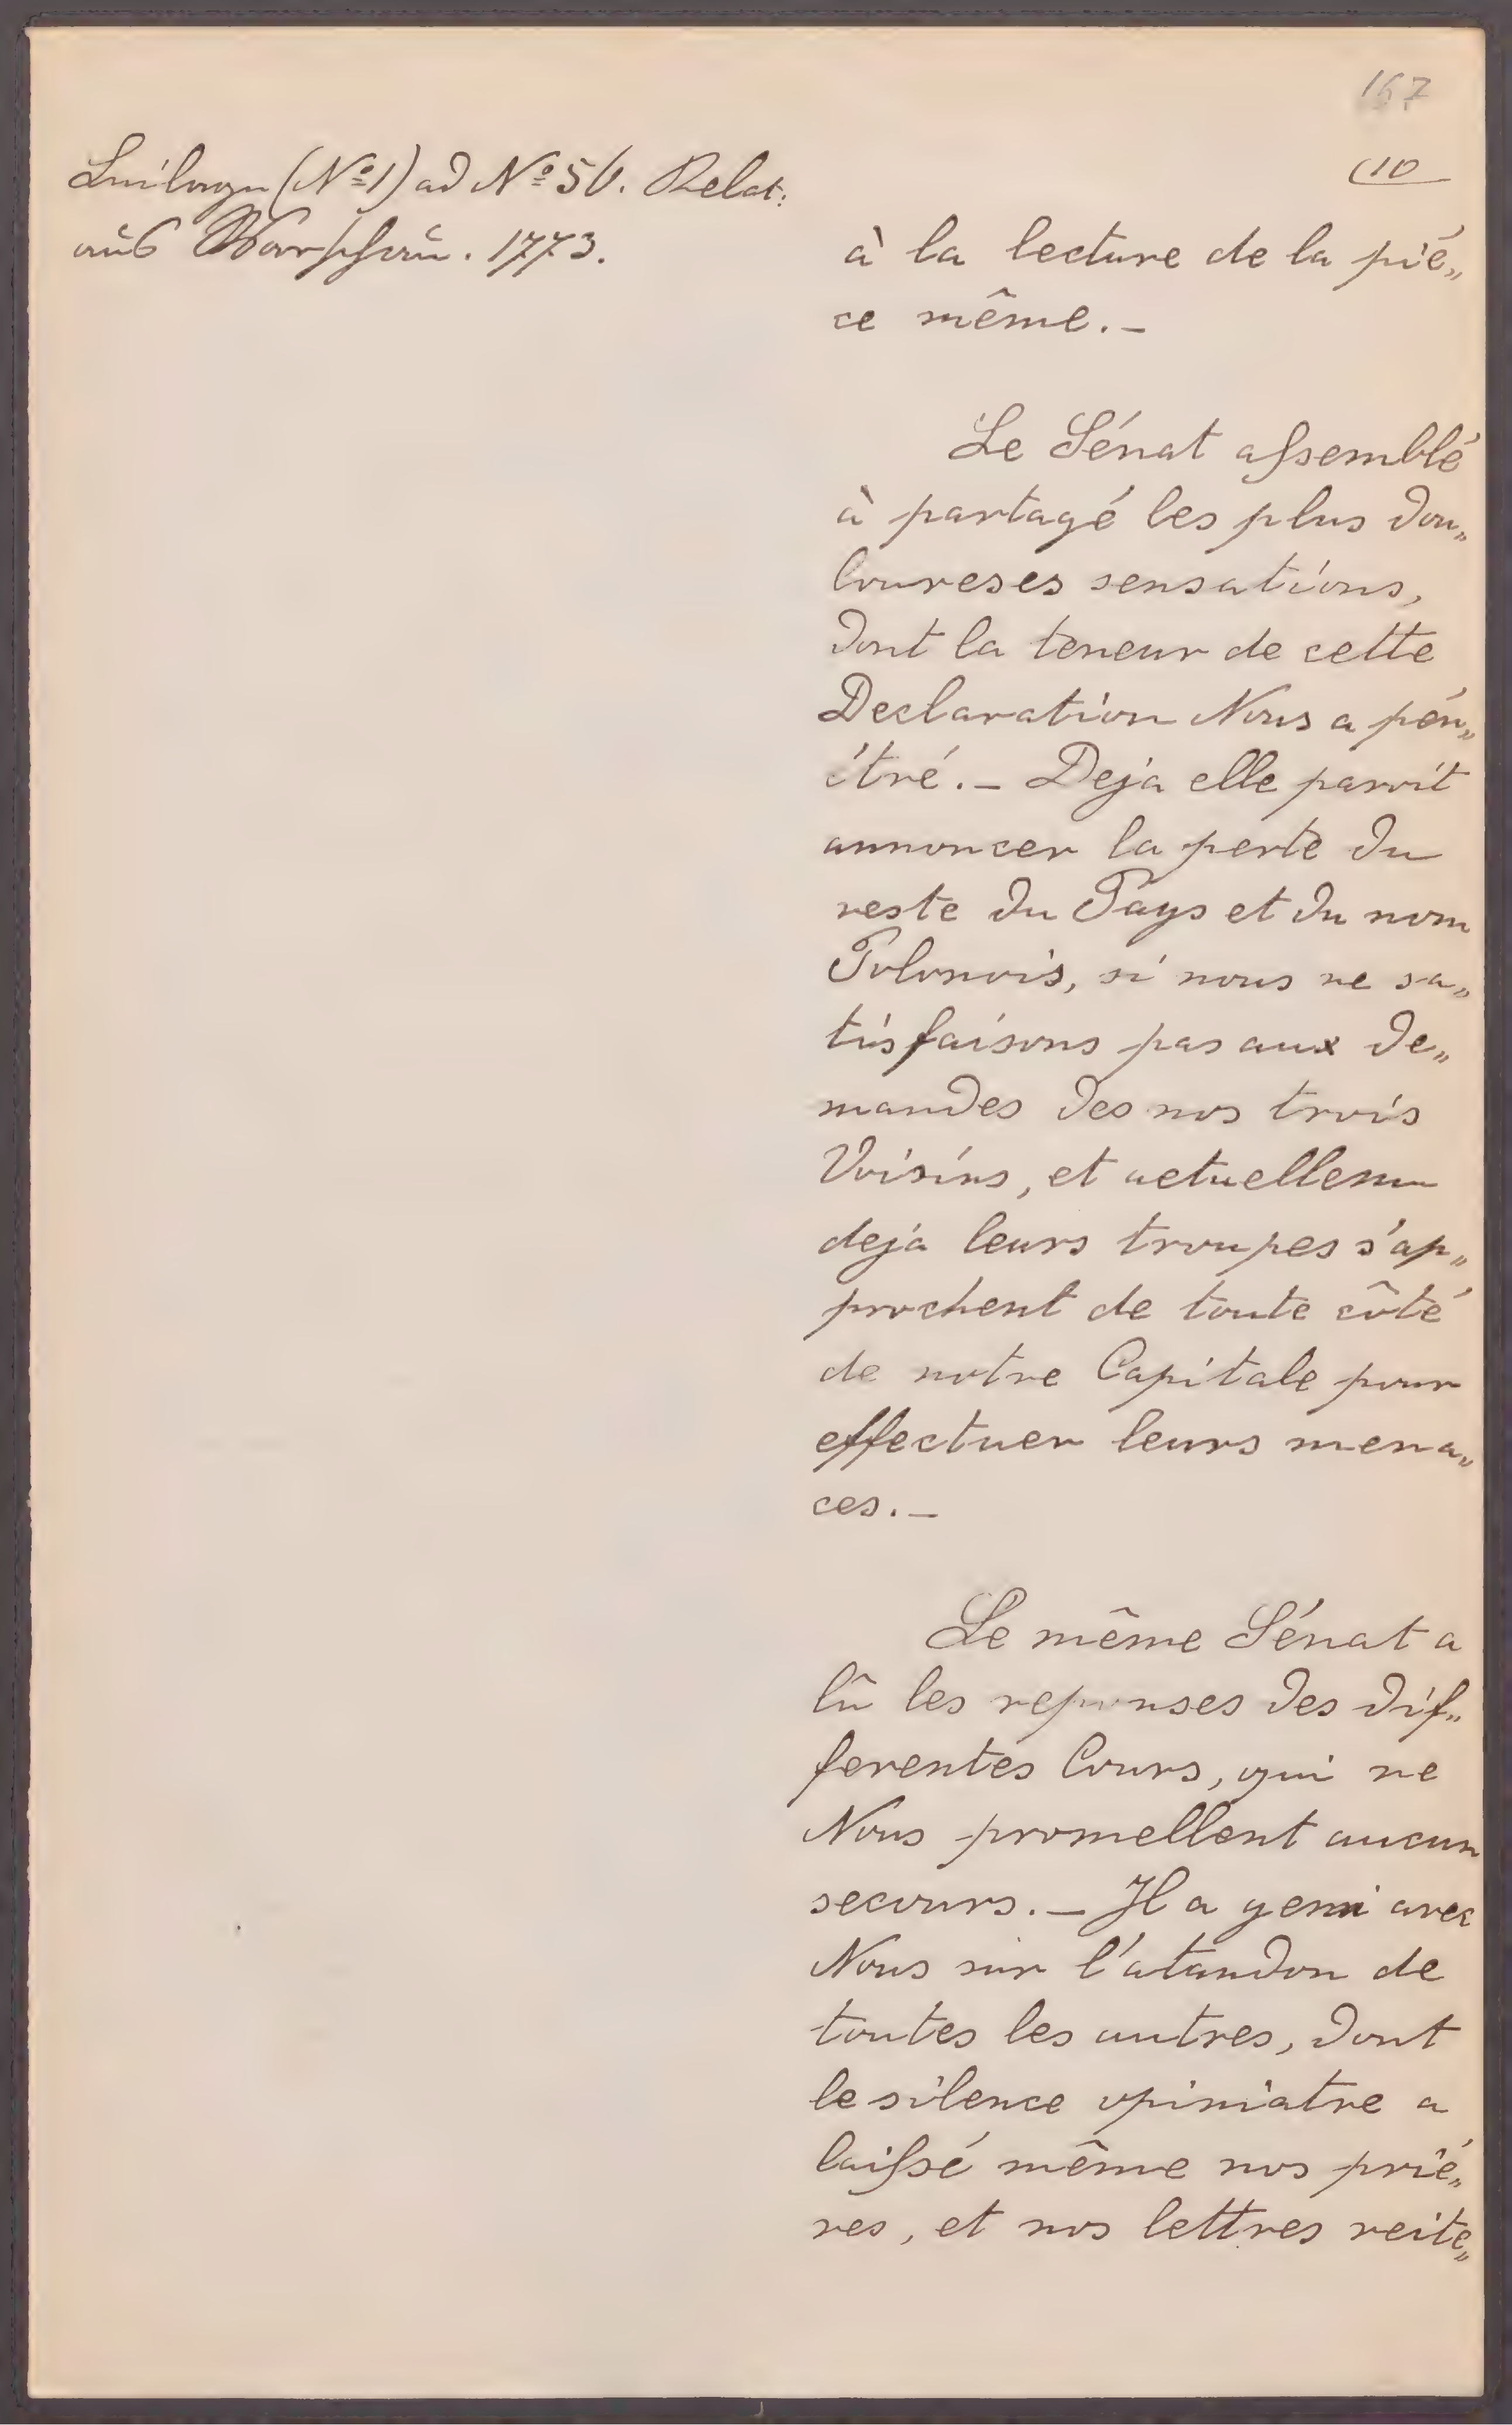 167
(10
Beilage (Nº 1) ad Nº 56. Relat:
aus Warschau. 1773.
à la lecture de la pié„
ce même. –
Le Sénat assemblé
à partagé les plus dou„
loureses sensations,
dont la teneur de cette
Declaration Nous a pén„
étré. – Deja elle paroit
annoncer la perte du
reste du Pays et du nom
Polonois, si nous ne sa„
tisfaisons pas aux de„
mandes des nos trois
Voisins, et actuellem
deja leurs troupes s'ap„
prochent de toute côté
de notre Capitale pour
effectuer leurs mena„
ces. –
Le même Sénat a
lû les reponses des dif„
ferentes Cours, qui ne
Nous promettent aucun
secours. – Il a gemi avec
Nous sur l'abandon de
toutes les autres, dont
le silence opiniatre a
laissé même nos prié„
res, et nos lettres reite„